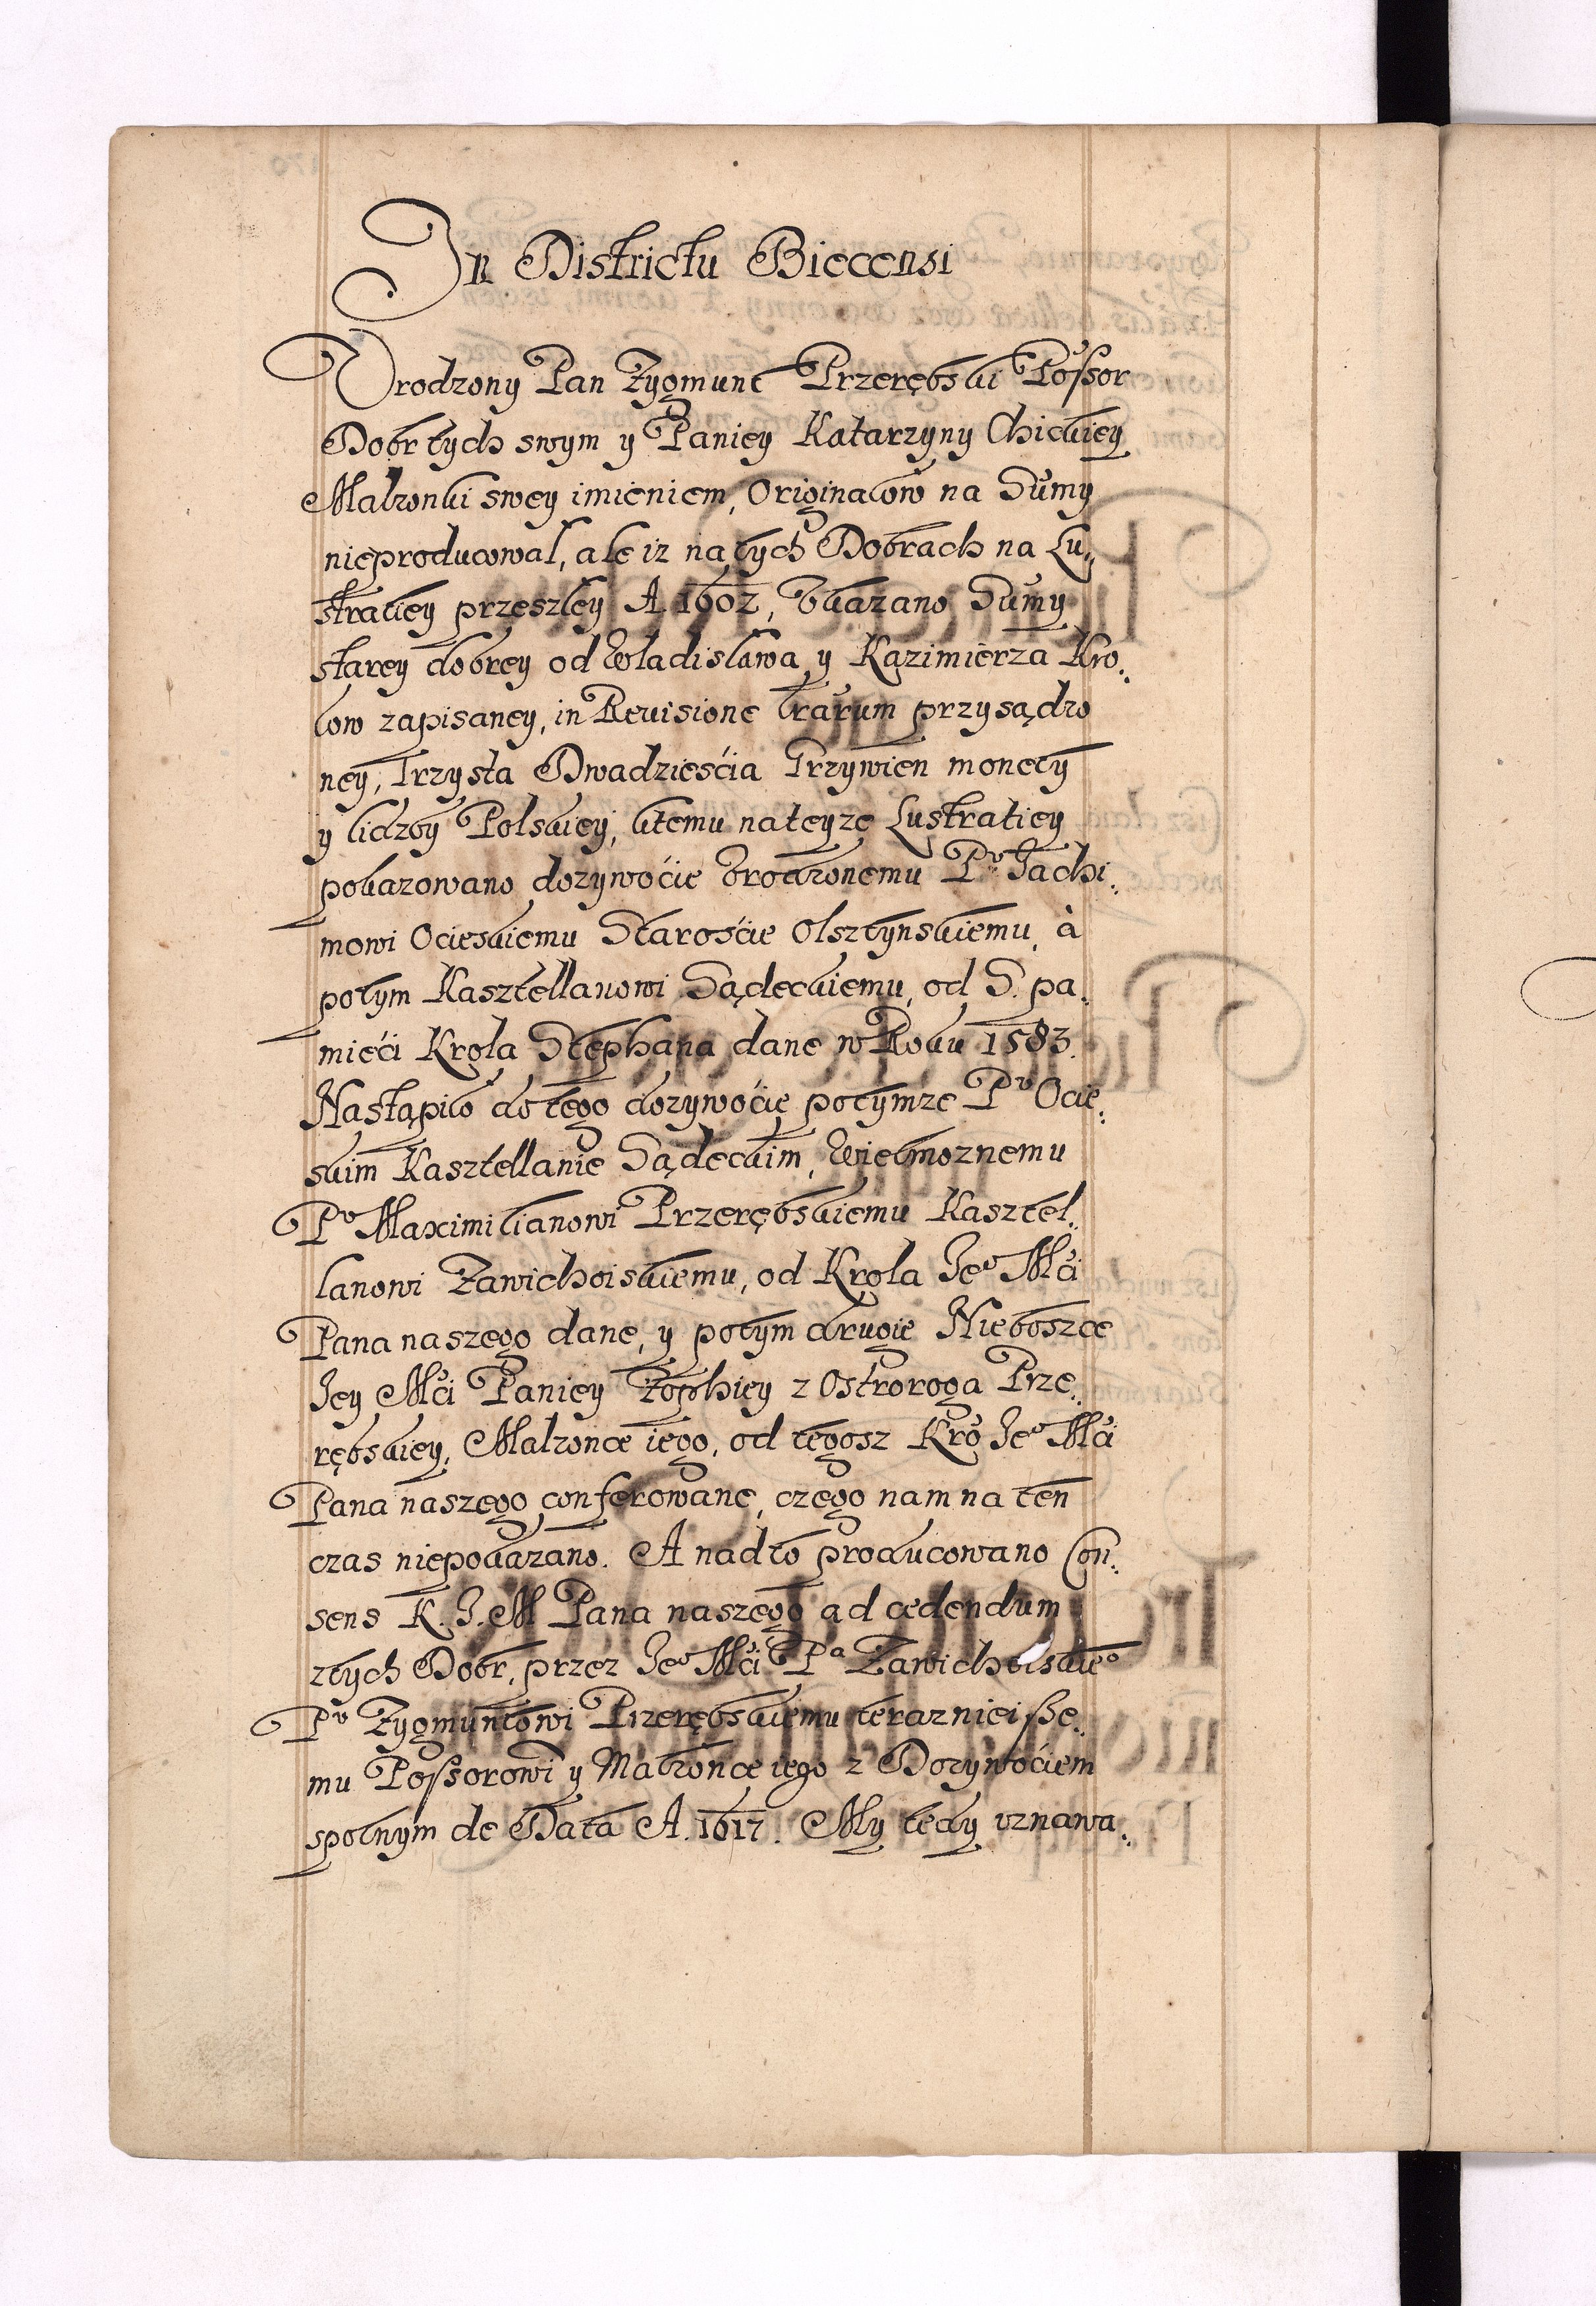 In Districtu Biecensi
Vrodzony Pan Zygmunt Przerębski Possor
Dobr tych swym y Paniey Katarzyny Chickiey
Malzonki swey imieniem, Originałow na Sumy
nieproducowal, ale iz na tych Dobrach na Lu„
stratiey przeszłey A. 1602, Vkazano Sumy
starey dobrey od Władisława y Kazimierza Kro„
low zapisaney, in Reuisione Lrarum przysądzo
ney, Trzysta Dwadzieścia Grzywien monety
y liczby Polskiey, ktemu na teyze Lustratiey
pokazowano dozywoćie Vrodzonemu Pu Jachi„
mowi Ocieskiemu Starośćie Olsztynskiemu, à
potym Kasztellanowi Sądeckiemu, od S. pa„
mięći Krola Stephana dane w Roku 1583.
Nastąpiło do tego dozywoćie po tymze Pu Ocie„
skim Kasztellanie Sądeckim, Wielmoznemu
Pu Maximilianowi Przerębskiemu Kasztel„
lanowi Zawichoiskiemu, od Krola Jeo Mći
Pana naszego dane, y potym drugie Nieboszce
Jey Mći Paniey Zophiey z Ostroroga Prze„
rębskiey, Malzonce iego, od tegosz Kro Jeo Mći
Pana naszego conferowane, czego nam na ten
czas niepokazano. A nadto producowano Con„
sens K. J. M Pana naszego ad cedendum
z tych Dobr, przez Jeo Mći Pa Zawichoiskieo
Pu Zygmuntowi Przerębskiemu terazniei sze„
mu Possorowi y Małzonce iego z Dozywoćiem
społnym de Data A. 1617. My tedy vznawa„